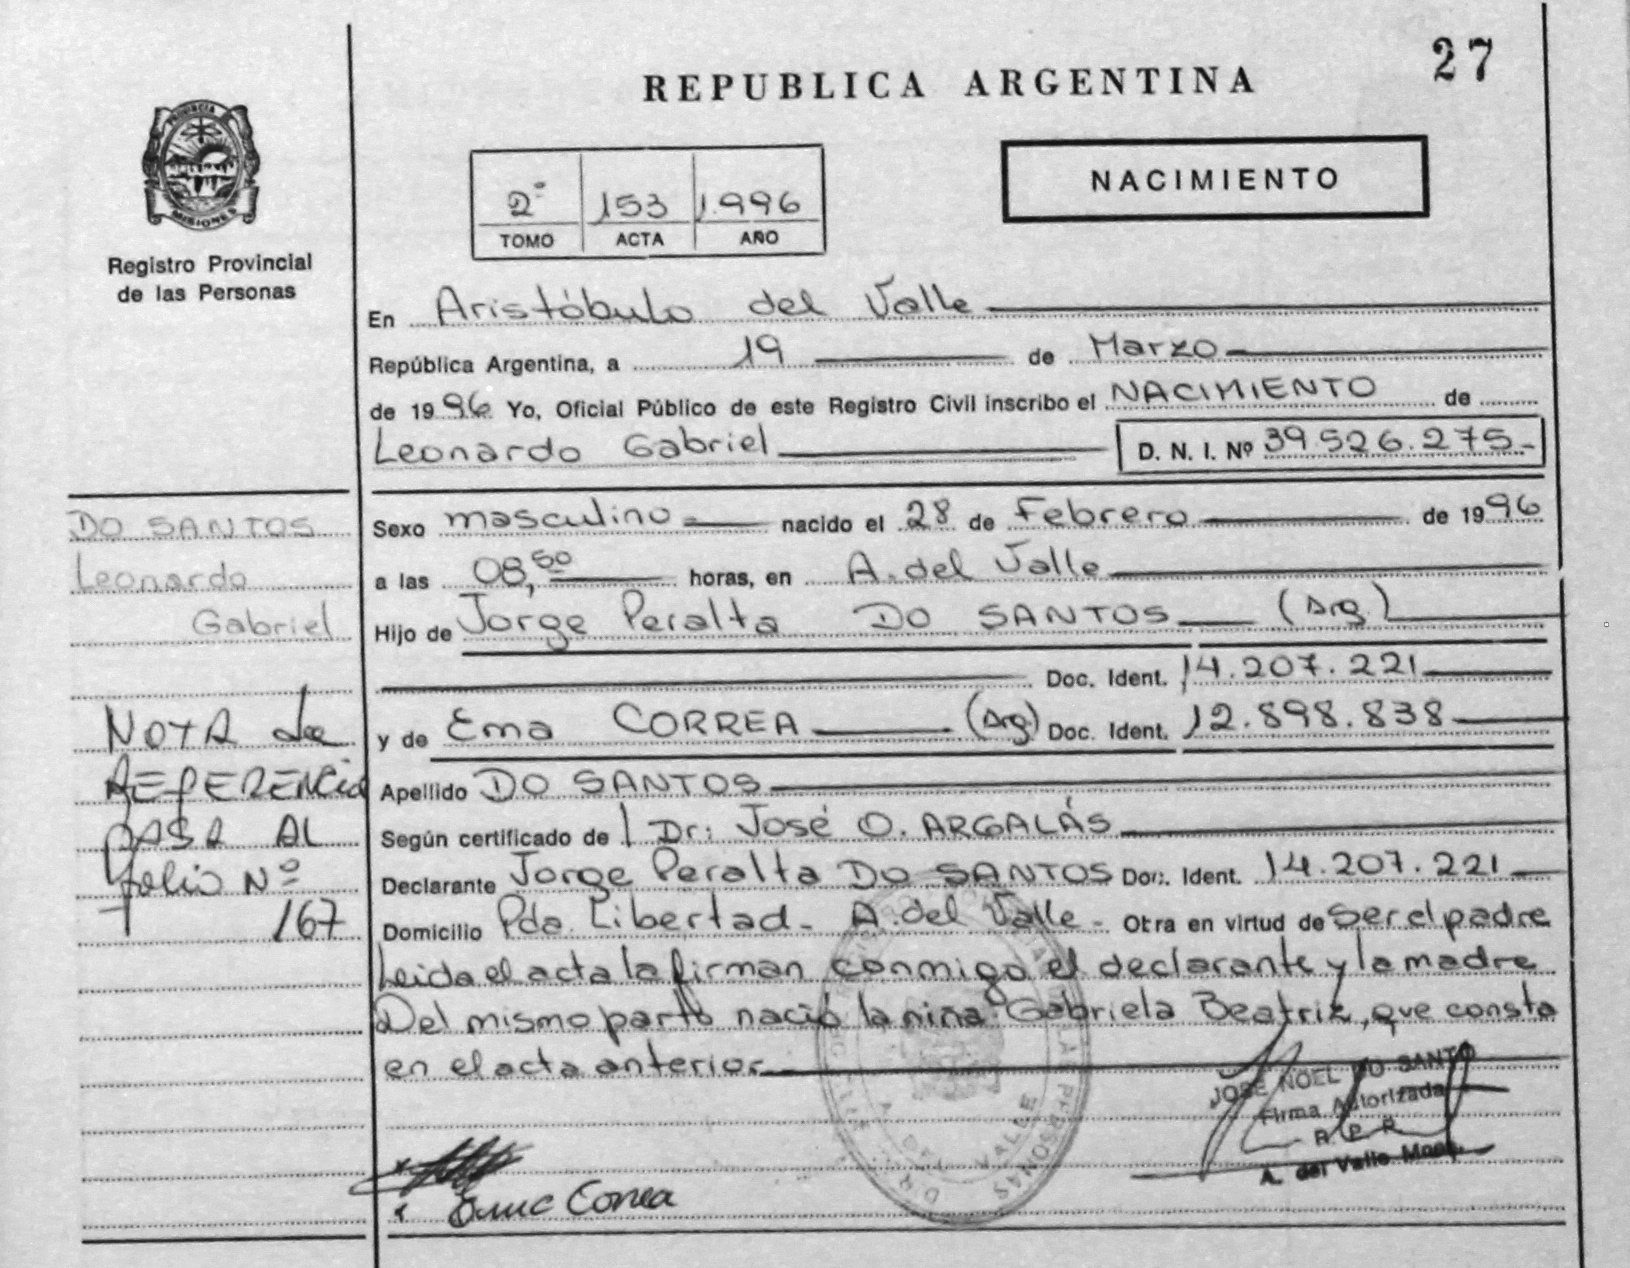 27
REPUBLICA ARGENTINA
PROVINCIA
MISIONES
Registro Provincial
de las Personas
NACIMIENTO
2º 153 1.996
TOMO ACTA AÑO
En Aristóbulo del Valle
República Argentina, a 19 de Marzo
de 1996 Yo, Oficial Público de este Registro Civil inscribo el NACIMIENTO de
Leonardo Gabriel D. N. I. Nº 39.526.275-
DO SANTOS
Leonardo
Gabriel
Sexo masculino nacido el 28 de Febrero de 1996
a las 08,50 horas, en A. del Valle
Hijo de Jorge Peralta DO SANTOS (Arg.)
Doc. Ident. 14.207.221
y de Ema CORREA (Arg) Doc. Ident. 12.898.838
Apellido DO SANTOS
Según certificado de Dr: José O. ARGALÁS
Declarante Jorge Peralta DO SANTOS Doc. Ident. 14.207.221
Domicilio Pda. Libertad - A. del Valle - Otra en virtud de ser el padre
Leida el acta la firman conmigo el declarante y la madre
Del mismo parto nació la niña: Gabriela Beatriz, que consta
en el acta anterior
NOTA de
REFERENCIA
PASA AL
folio Nº
167
JOSE NOEL DO SANTO
Firma Autorizada
R. P. P.
A. del Valle Mnes.
DEL VALLE
Correa